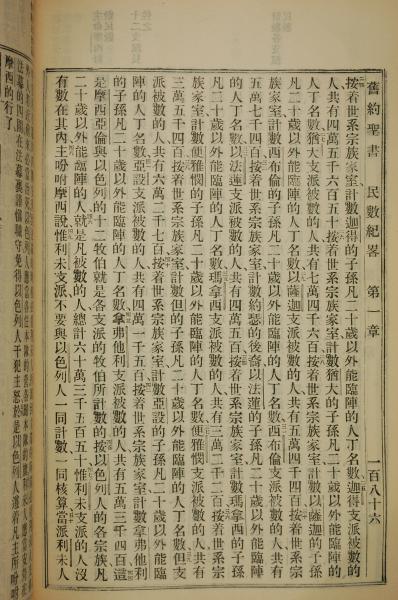 舊約聖書 民數紀畧 第一章 一百八十六
按着世系宗族家室計數迦得的子孫凡二十歲以外能臨陣的人丁名數迦得支派被數的
人共有四萬五千六百五十按着世系宗族家室計數猶大的子孫凡二十歲以外能臨陣的
人丁名數猶大支派被數的人共有七萬四千六百按着世系宗族家室計數以薩迦的子孫
凡二十歲以外能臨陣的人丁名數以薩迦支派被數的人共有五萬四千四百按着世系宗
族家室計數西布倫的子孫凡二十歲以外能臨陣的人丁名數西布倫支派被數的人共有
五萬七千四百按着世系宗族家室計數約瑟的後裔以法蓮的子孫凡二十歲以外能臨陣
的人丁名數以法蓮支派被數的人共有四萬五百按着世系宗族家室計數瑪拿西的子孫
凡二十歲以外能臨陣的人丁名數瑪拿西支派被數的人共有三萬二千二百按着世系宗
族家室計數便雅憫的子孫凡二十歲以外能臨陣的人丁名數便雅憫支派被數的人共有
三萬五千四百按着世系宗族家室計數但的子孫凡二十歲以外能臨陣的人丁名數但支
派被數的人共有六萬二千七百按着世系宗族家室計數亞設的子孫凡二十歲以外能臨
陣的人丁名數亞設支派被數的人共有四萬一千五百按着世系宗族家室計數拿弗他利
的子孫凡二十歲以外能臨陣的人丁名數拿弗他利支派被數的人共有五萬三千四百這
是摩西亞倫與以色列的十二牧伯就是各支派的牧伯所計數的按以色列人的各宗族凡
二十歲以外能臨陣的人就是凡被數的人總計六十萬三千五百五十惟利未支派的人沒
有數在其內主吩咐摩西說惟利未支派不要與以色列人一同計數一同核算當派利未人
法幕的四圍在法幕裏謹愼職守免得以色列人干犯主怒於是以色列人遵着凡主所吩咐
摩西的行了